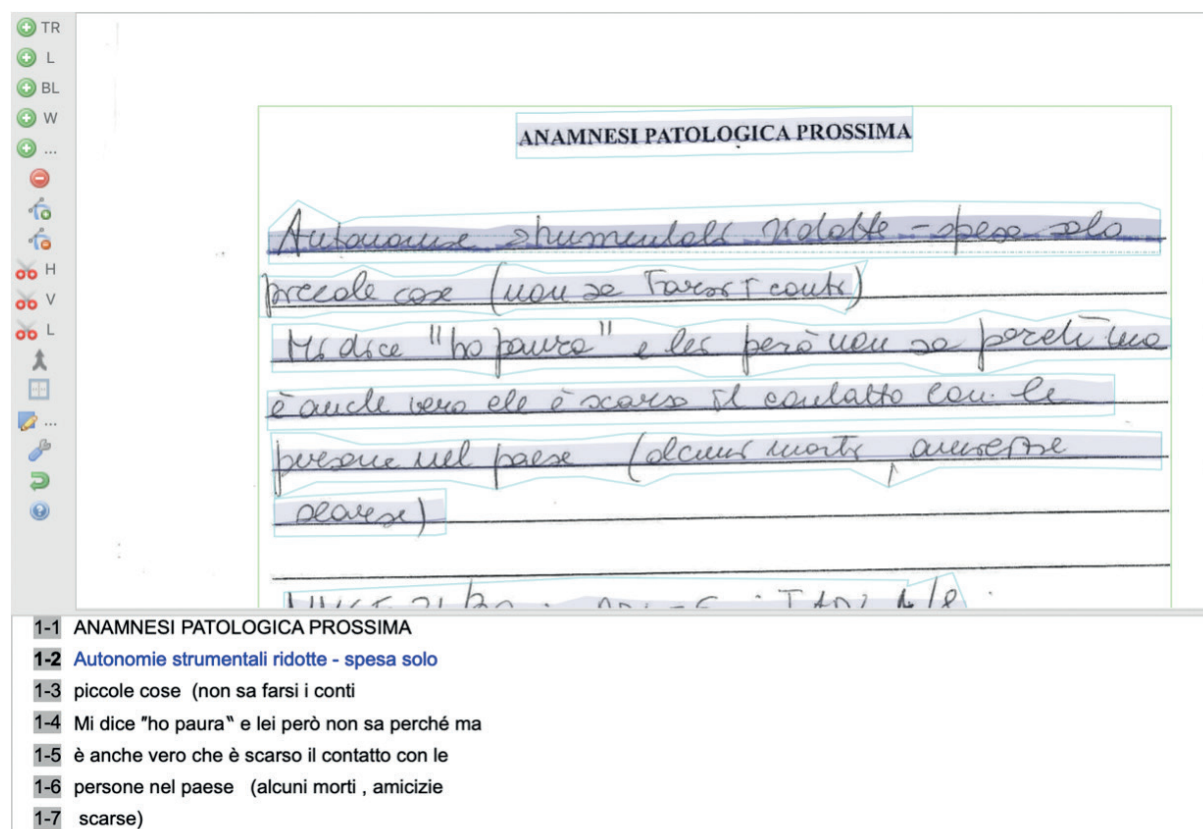 TR
L
BL
W
...
H
V
L
...
ANAMNESI PATOLOGICA PROSSIMA
Autonomie strumentali ridotte - spesa solo
piccole cose (non sa farsi i conti)
Mi dice "ho paura" e lei però non sa perché ma
è anche vero che è scarso il contatto con le
persone nel paese (alcuni morti, amicizie
scarse)
1-1 ANAMNESI PATOLOGICA PROSSIMA
1-2 Autonomie strumentali ridotte - spesa solo
1-3 piccole cose (non sa farsi i conti
1-4 Mi dice "ho paura" e lei però non sa perché ma
1-5 è anche vero che è scarso il contatto con le
1-6 persone nel paese (alcuni morti , amicizie
1-7 scarse)